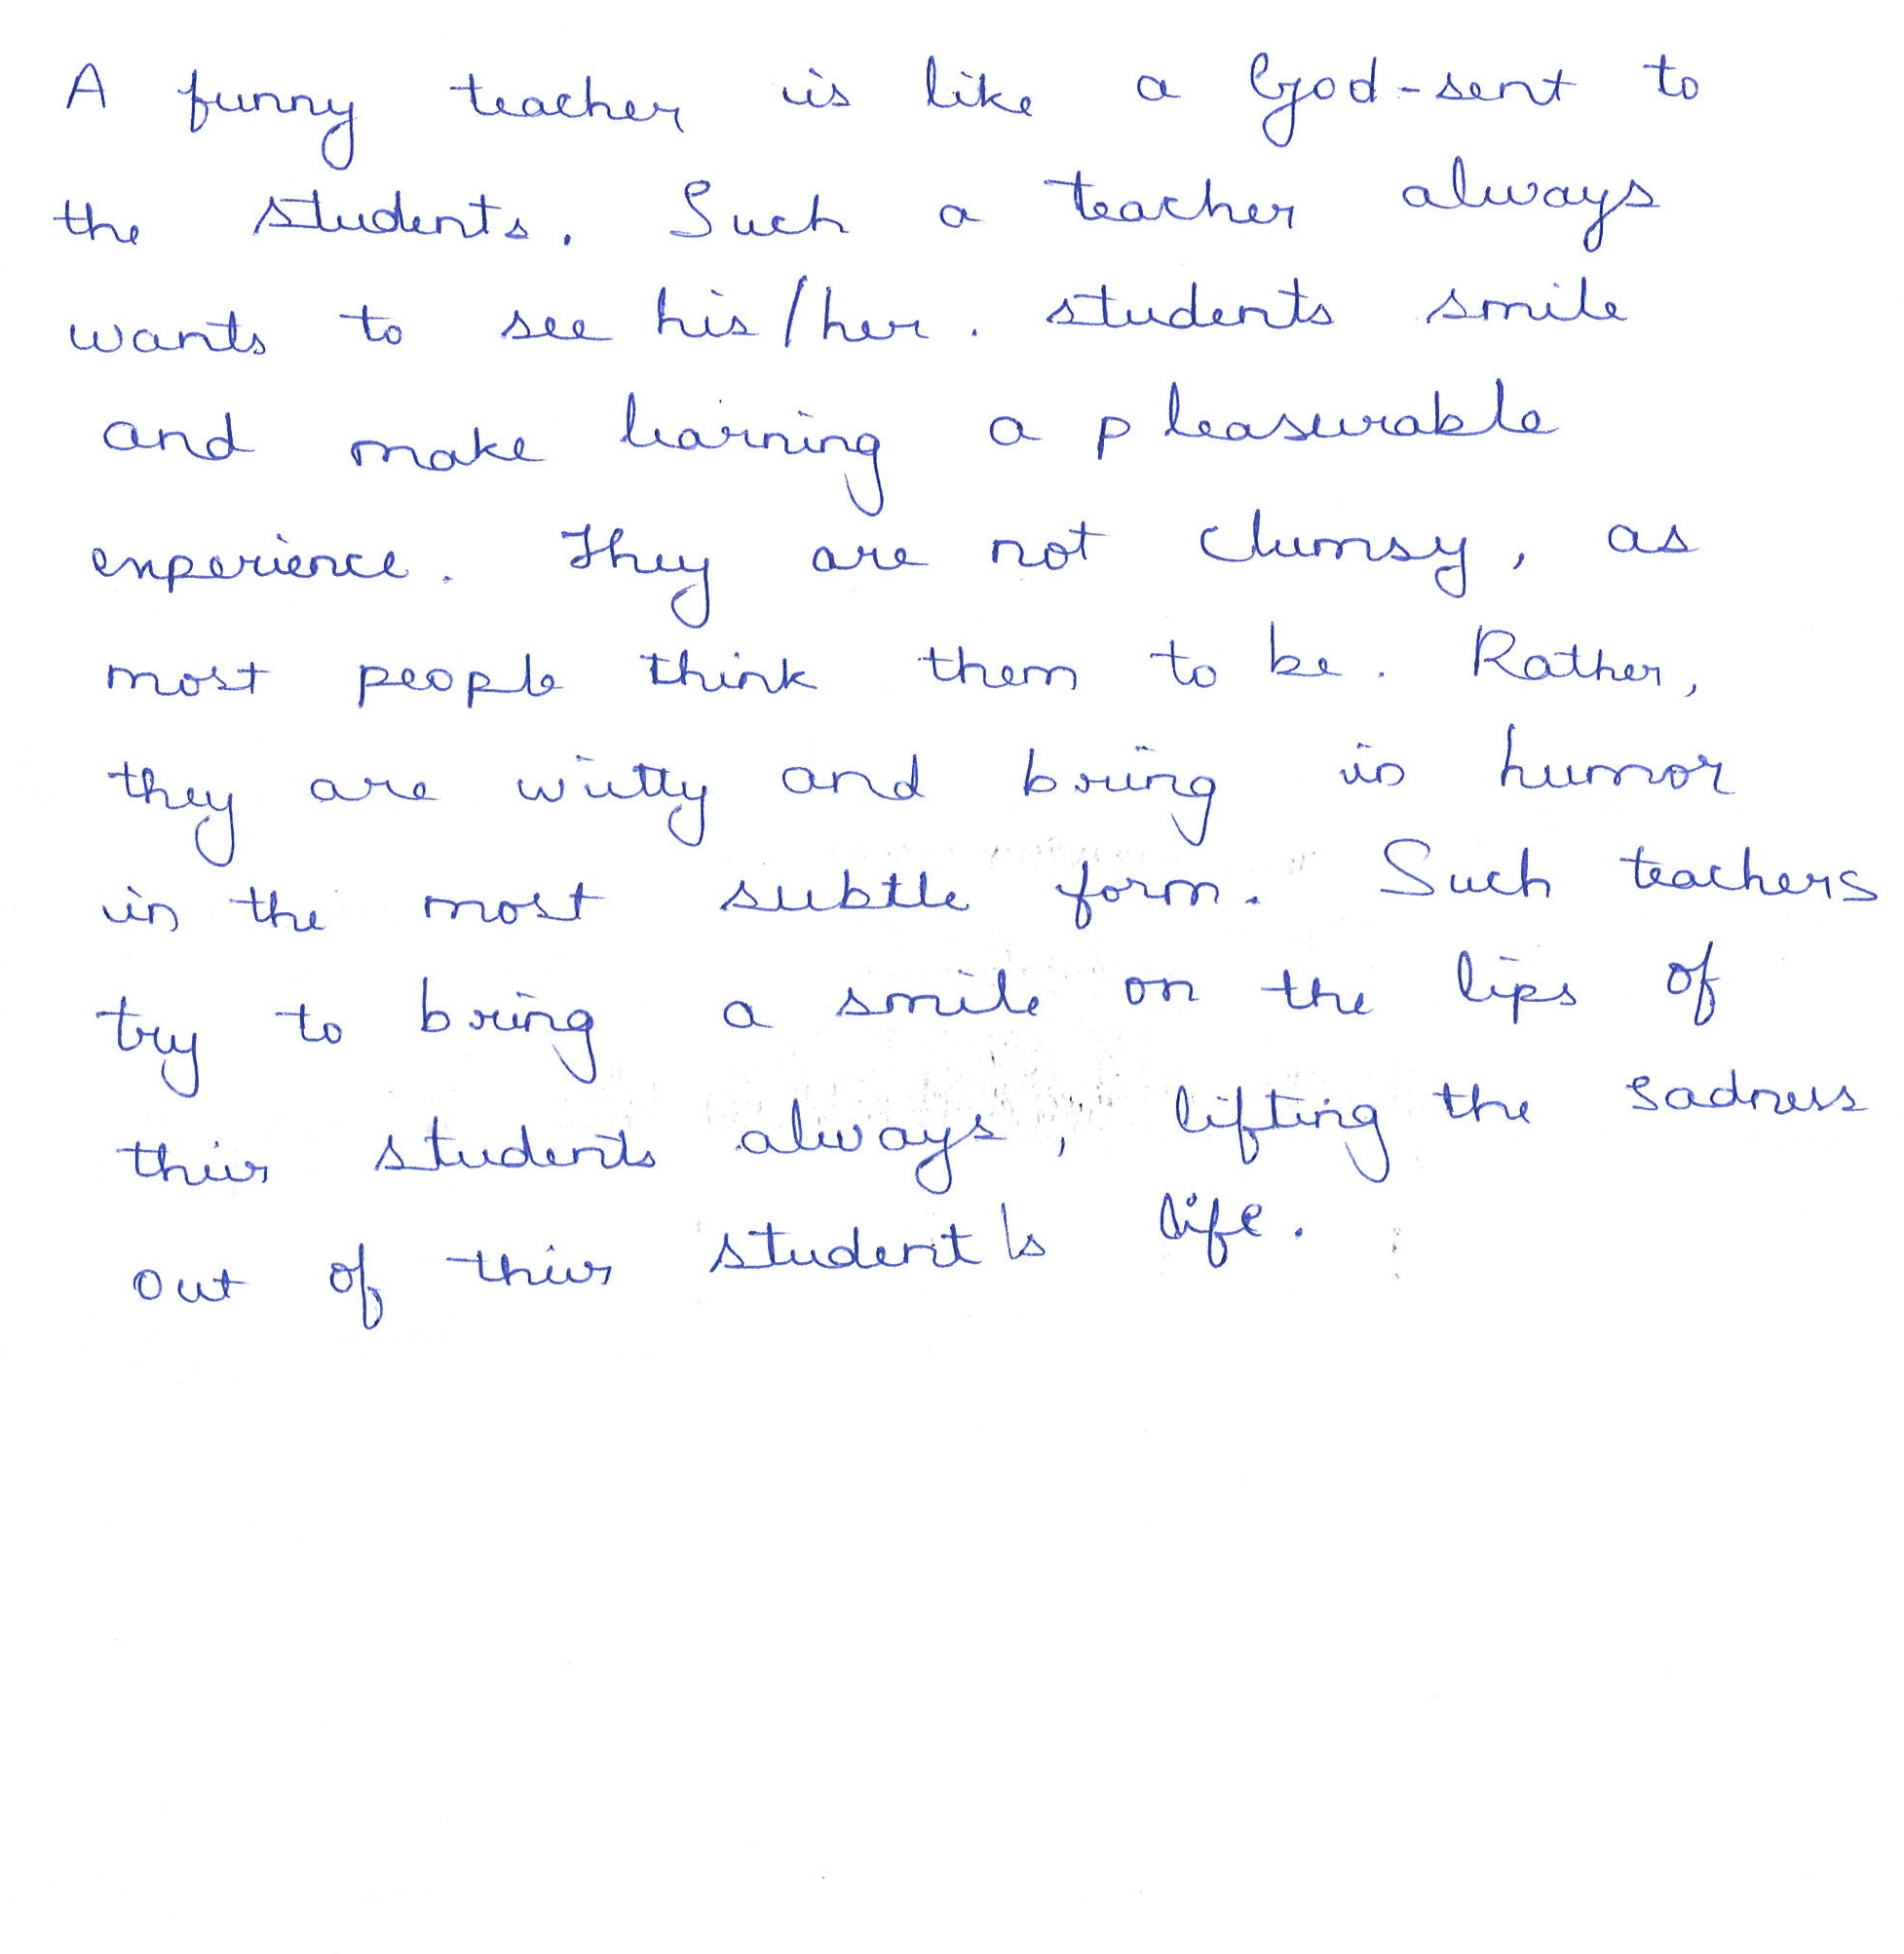 A funny teacher is like a God-sent to
the students. Such a teacher always
wants to see his/her. students smile
and make learning a pleasurable
experience. They are not clumsy, as
most people think them to be. Rather,
they are witty and bring in humor
in the most subtle form. Such teachers
try to bring a smile on the lips of
their students always, lifting the sadness
out of their student's life.